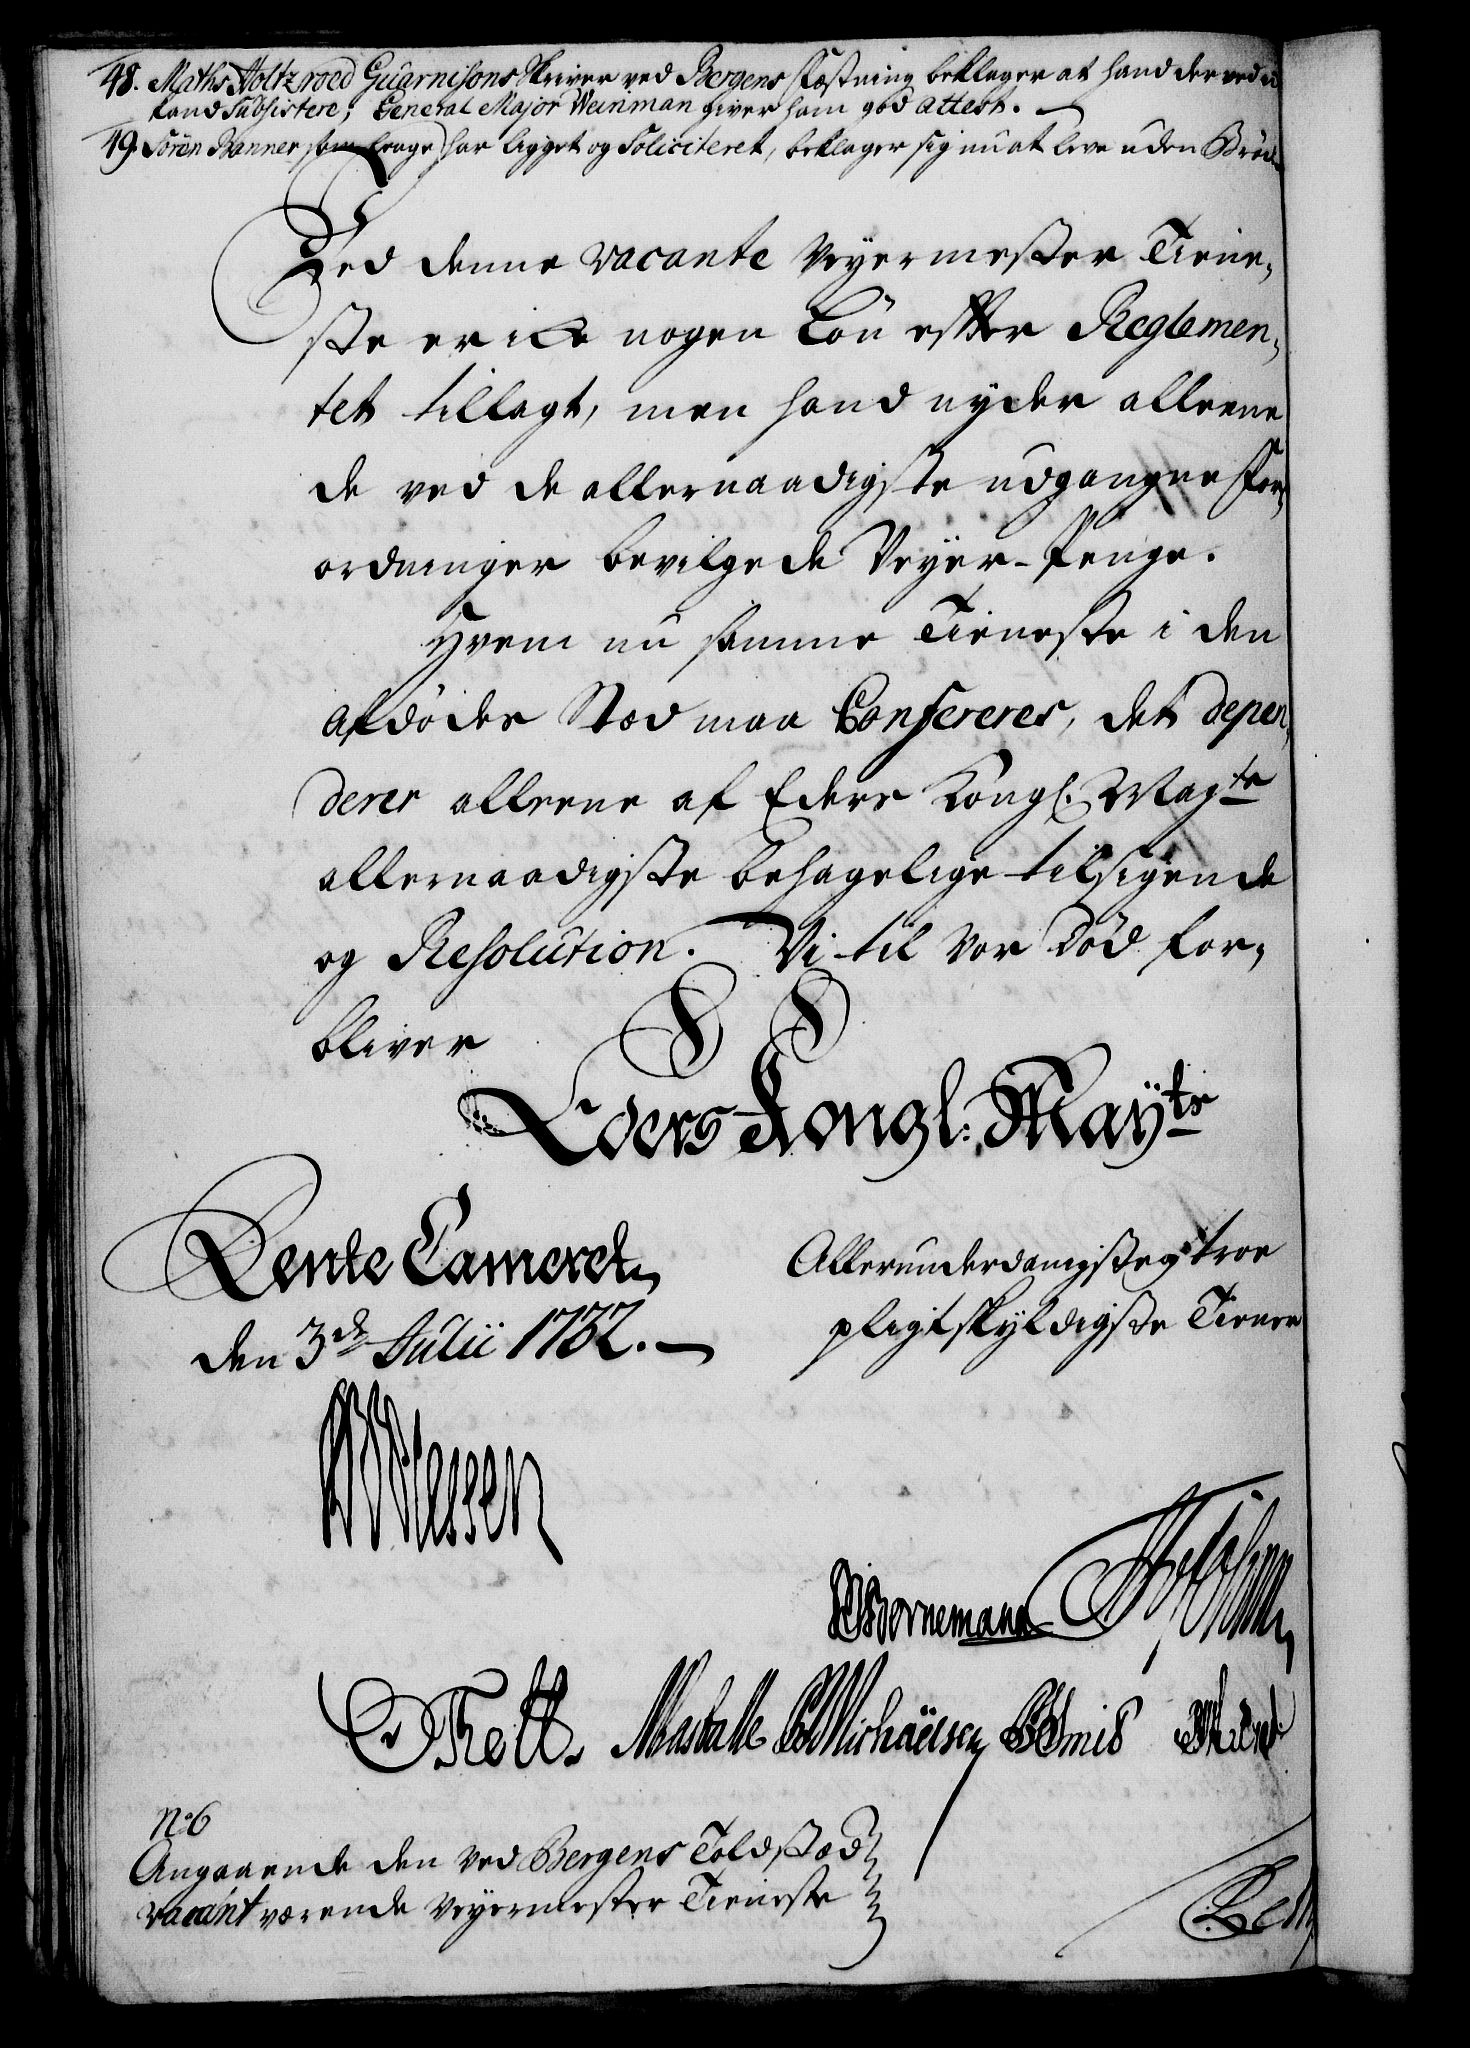 48. Maths Holtzroed Guarnisons Skriver ved Bergens Fæstning beklager at hand der ved ei
kand Subsistere, General Major Weinman giver ham god attest.
49. Sören Banner som længe har ligget og Soliciteret, beklager sig nu at leve uden Bröd
Ved denne vacante Veyermester Tiene,
ste er icke nogen Lön efter Reglemen,
tet tillagt, men hand nyder alleene
de ved de allernaadigste udgangne For,
ordninger bevilgede Veyer-Penge.
Hvem nu samme Tieneste i den
afdödes Stæd maa Confereres, det depen,
derer alleene af Eders Kongl. Mayts
allernaadigste behagelige tilsigende
og Resolution. Vi til vor Död for,
bliver
Eders Kongl: Mayts
Rente Cameret
den 3de Julii 1732.
Allerunderdanigste og troe
pligtskyldigste Tienere
Bornemann
Mastalle Michaelsen
No 6
Angaaende den ved Bergens Toldstæd
vacant værende Veyermester Tieneste